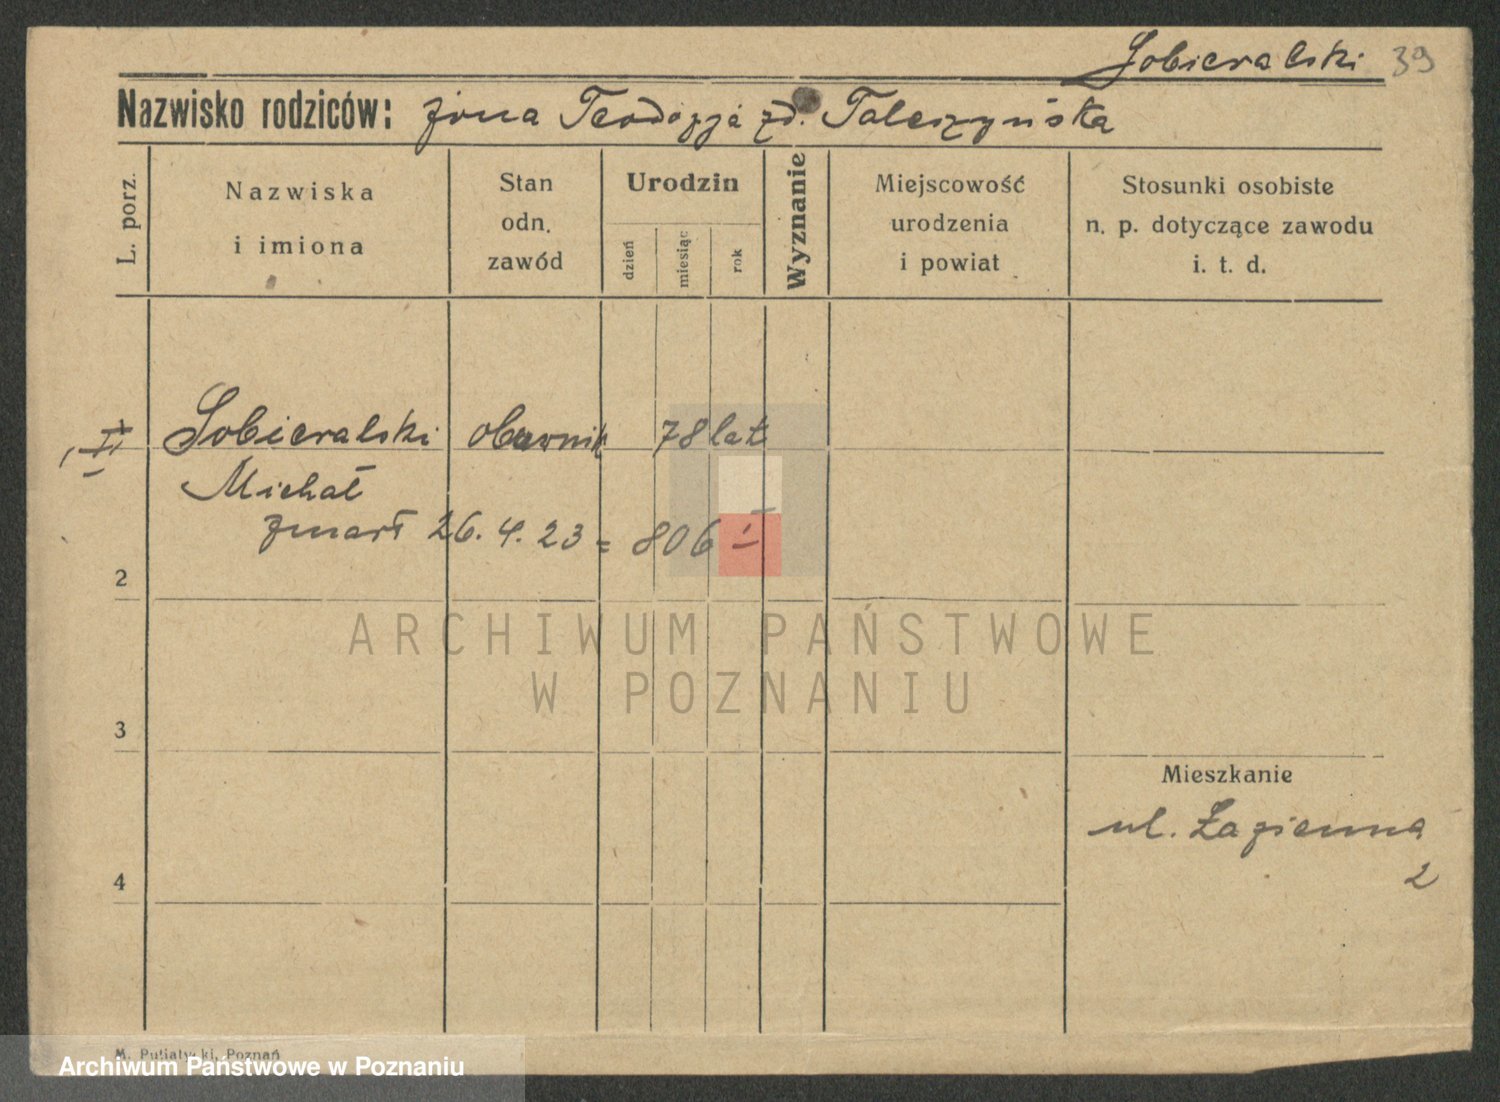 Sobieralski 39
Nazwisko rodziców: żona Teodozja zd. Taleszyńska
L. porz.
Nazwiska
i imiona
Stan
odn.
zawód
Urodzin
dzień
miesiąc
rok
Wyznanie
Miejscowość
urodzenia
i powiat
Stosunki osobiste
n. p. dotyczące zawodu
i. t. d.
Sobieralski 78 lat
Michał
zmarł 26. 4. 23 = 806
2
ARCHIWUM PAŃSTWOWE
W POZNANIU
3
Mieszkanie
ul. Łazienna
2
4
M. Putiatycki, Poznań
Archiwum Państwowe w Poznaniu